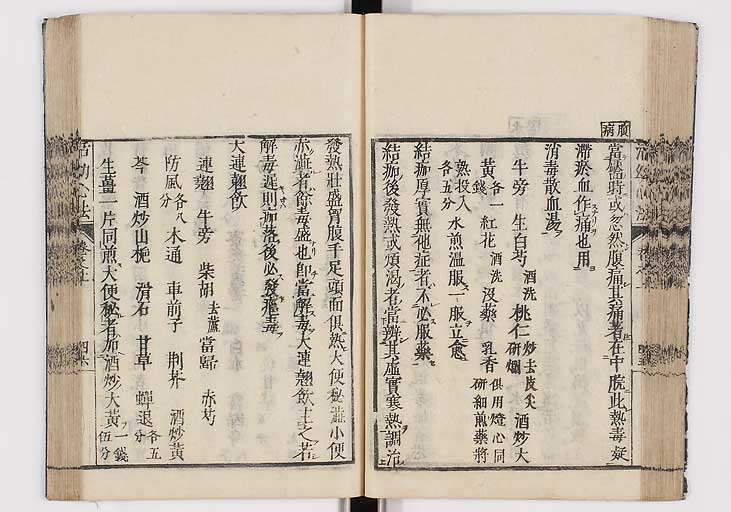 當靨時或忽然腹痛其痛著在中脘此熱毒凝
滯瘀血作痛也用
消毒散血湯
牛旁 生白芍 酒洗 桃仁 炒去皮尖研爛 酒炒大
黃各一錢 紅花 酒洗 沒藥 乳香 俱用燈心同研細煎藥將
熟投入各五分 水煎溫服一服立愈
結痂厚實無他症者不必服藥
結痂後發熱或煩渴者當辨其虛實寒熱調治
發熱壯盛胃腹手足頭面俱熱大便秘澁小便
赤澁者餘毒盛也卽當解毒大連翹飲主之若
解毒遲則痂落後必發癰毒
大連翹飲
連翹 牛旁 柴胡 去蘆 當歸 赤芍
防風各八分 木通 車前子 荆芥 酒炒黃
芩 酒炒山梔 滑石 甘草 蟬退各五分
生薑一片同煎大便秘者加酒炒大黃一錢伍分
活幼心法